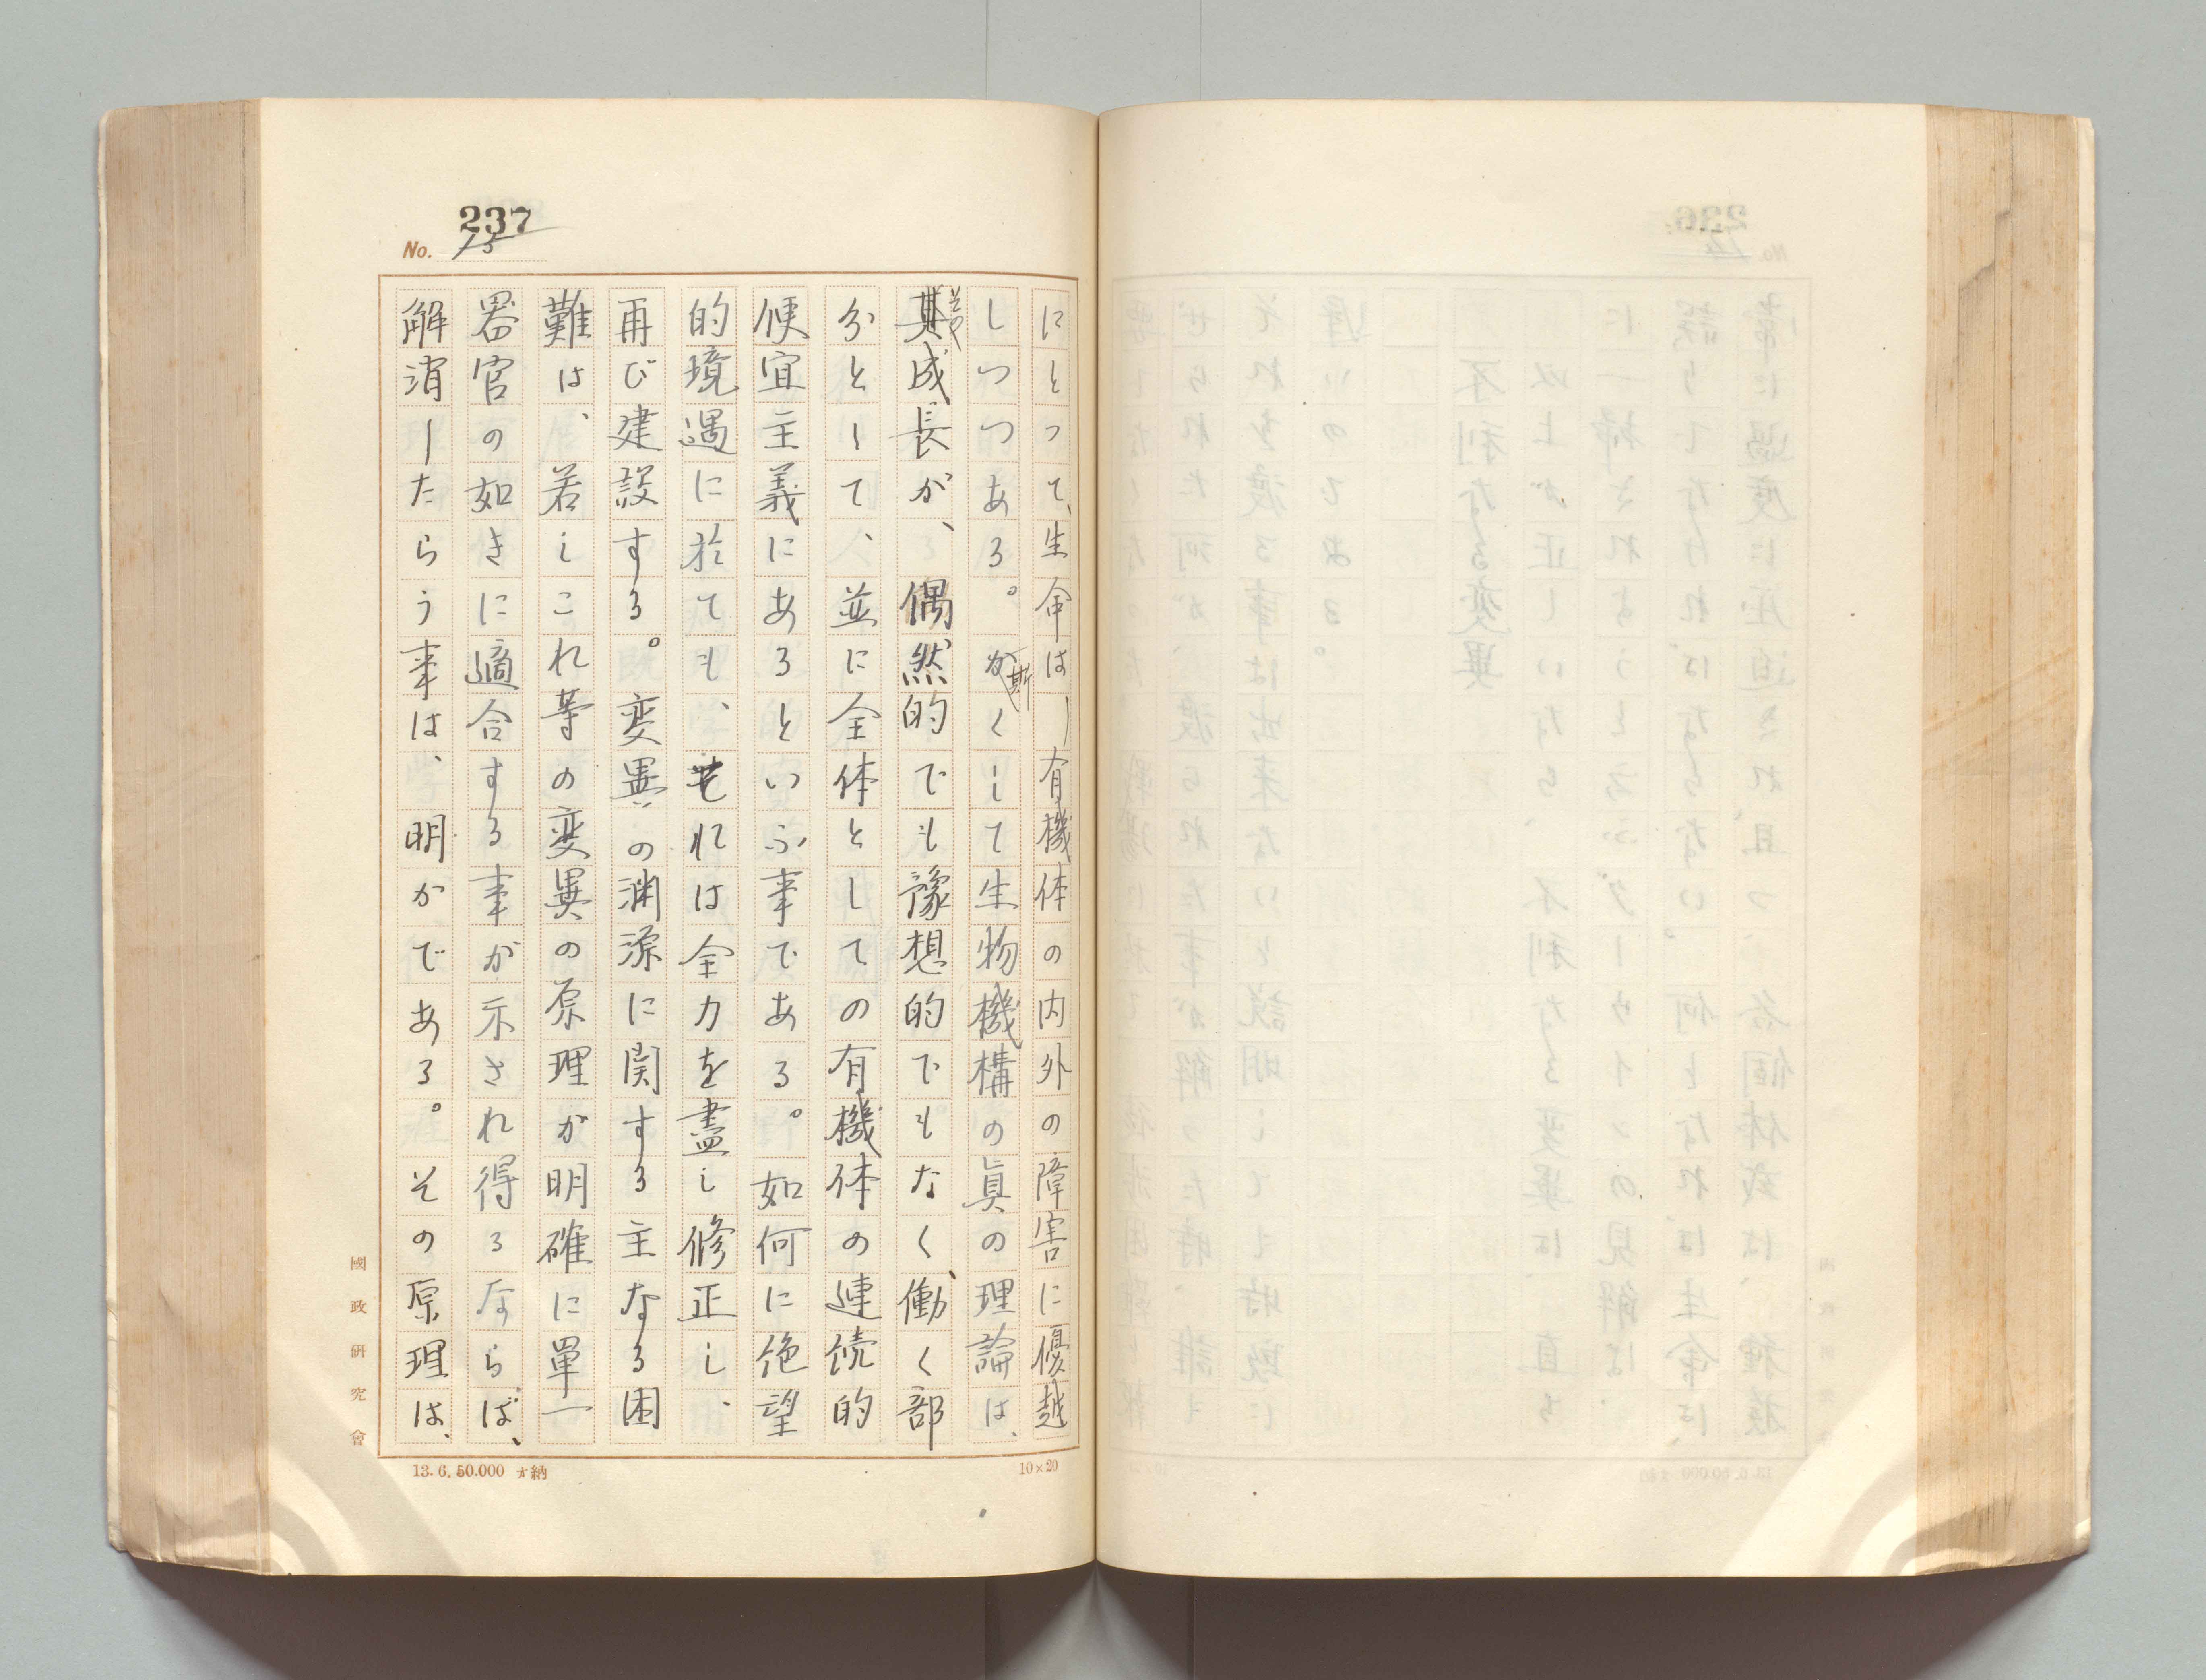 237
No. 15
にとって、生命は――有機体の内外の障害に優越
しつつある。斯くして生物機構の眞の理論は、
其成長が、偶然的でも豫想的でもなく、働く部
分として、並に全体としての有機体の連続的
便宜主義にあるといふ事である。如何に絶望
的境遇に於ても、それは全力を盡し修正し、
再び建設する。変異の渊源に関する主なる困
難は、若しこれ等の変異の原理が明確に單一
器官の如きに適合する事が示され得るならば、
解消したらう事は、明かである。その原理は、
國政研究會
13.6.50.000 才納
10×20